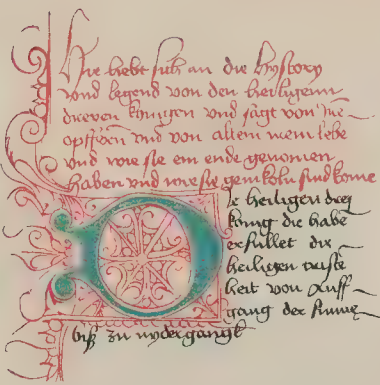 Hie hebt sich an die hystory
vnd legend von den heiligenn
dreyen kunigen vnd sagt von
vnd von allem irem lebē
vnd wie sie ein ende genomen
haben vnd wie sie gein koln sind kome
Die heiligen drey
kunig die habē
erfullet die
heiligen criste
heit von auff
gang der sunne
biß zu nydergangk